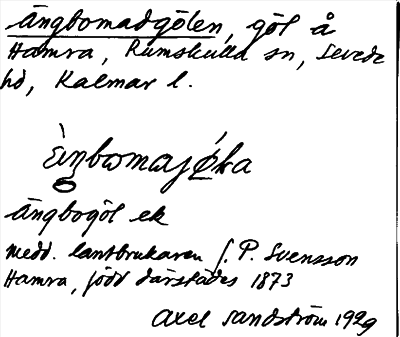 Ängbomadgölen, göl å
Hamra, Rumskulla sn, Sevede
hd, Kalmar l.
ängbogöl ek
medd. lantbrukaren J. P. Svensson
Hamra, född därstädes 1873
Axel Sandström 1929